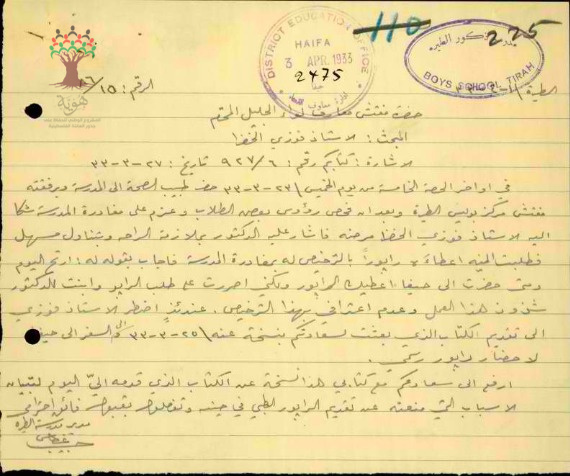 110
275
DISTRICT EDUCATION OFFICE
HAIFA
3 APR. 1933
2475
BOYS SCHOOL TIRAH
هوية
الرقم: ١٥/
الطيرة
حضرة مفتش معارف لواء الجليل المحترم
المبحث: الاستاذ فوزي الخضرا
الاشارة: كتابكم رقم: ٩٢٧/٦ تاريخ: ٢٧-٣-٣٣
في اواخر الحصة الخامسة من يوم الخميس ٢٣-٣-٣٣ حضر طبيب الصحة الى المدرسة ومرفقته
مفتش مركز بوليس الطيرة وبعد ان فحص رؤوس بعض الطلاب وعزم على مغادرة المدرسة شكا
اليه الاستاذ فوزي الخضرا مرضه فاشار عليه الدكتور بملازمة الراحة وتناول مسهل
فطلبت اليه اعطاءه رابوراً بالترخيص له بمغادرة المدرسة فاجاب بقوله له: ارتح اليوم
ومتى حضرت الى حيفا اعطيك الرابور ولكني اصررت على طلب الرابور وابنت للدكتور
شذوذ هذا العمل وعدم اعترافي بهذا الترخيص. عندئذ اضطر الاستاذ فوزي
الى تقديم الكتاب الذي بعثت لسعادتكم بنسخة عنه ٢٥-٣-٣٣ والسفر الى حيفا
لاحضار رابور رسمي.
ارفع الى سعادتكم مع كتابي هذا نسخة عن الكتاب الذي قدمه اليّ اليوم لتبيان
الاسباب التي منعته عن تقديم الرابور الطبي في حينه وتفضلوا بقبول فائق احترامي
مدير مدرسة الطيرة